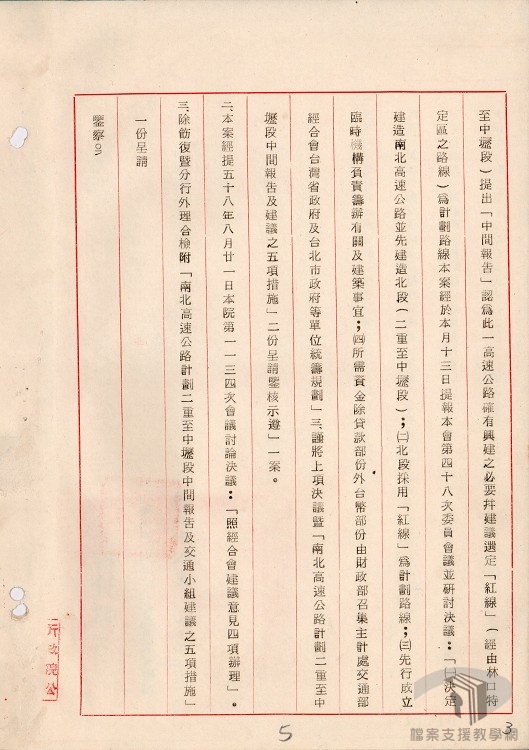 至中壢段）提出「中間報告」認爲此一高速公路確有興建之必要幷建議選定「紅線」（經由林口特
定區之路線）爲計劃路線本案經於本月十三日提報本會第四十八次委員會議並研討決議：「㈠決定
建造南北高速公路並先建造北段（二重至中壢段）；㈡北段採用「紅線」爲計劃路線；㈢先行成立
臨時機構負責籌辦有關及建築事宜；㈣所需資金除貸款部份外台幣部份由財政部召集主計處交通部
經合會台灣省政府及台北市政府等單位統籌規劃」三、謹將上項決議暨「南北高速公路計劃二重至中
壢段中間報告及建議之五項措施」二份呈請鑒核示遵」一案。
二、本案經提五十八年八月廿一日本院第一一三四次會議討論決議：「照經合會建議意見四項辦理」。
三、除飭復暨分行外理合檢附「南北高速公路計劃二重至中壢段中間報告及交通小組建議之五項措施」
一份呈請
鑒察。
行政院公
5
3
檔案支援教學網